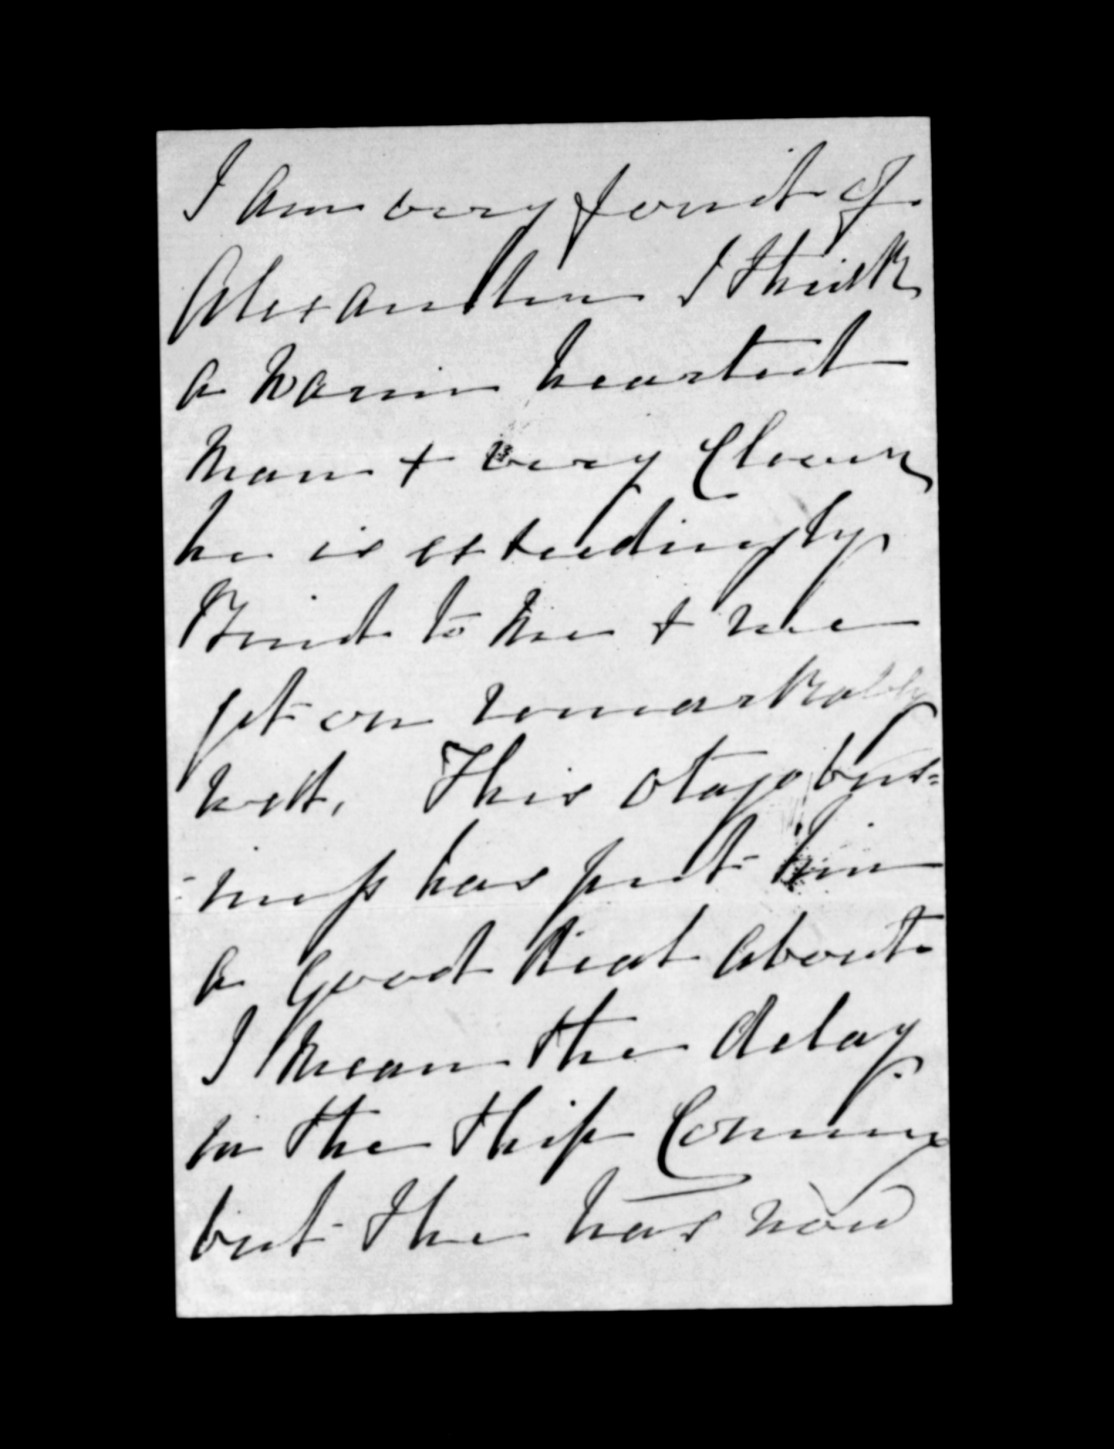 I am very fond of
Alexander I think
a warm hearted
man + very clever
he is exceedingly
Kind to me + we
get on remarkably
well. This otago bus=
-iness has put him
a good deal about
I mean the delay
in the ship Coming
but she has now